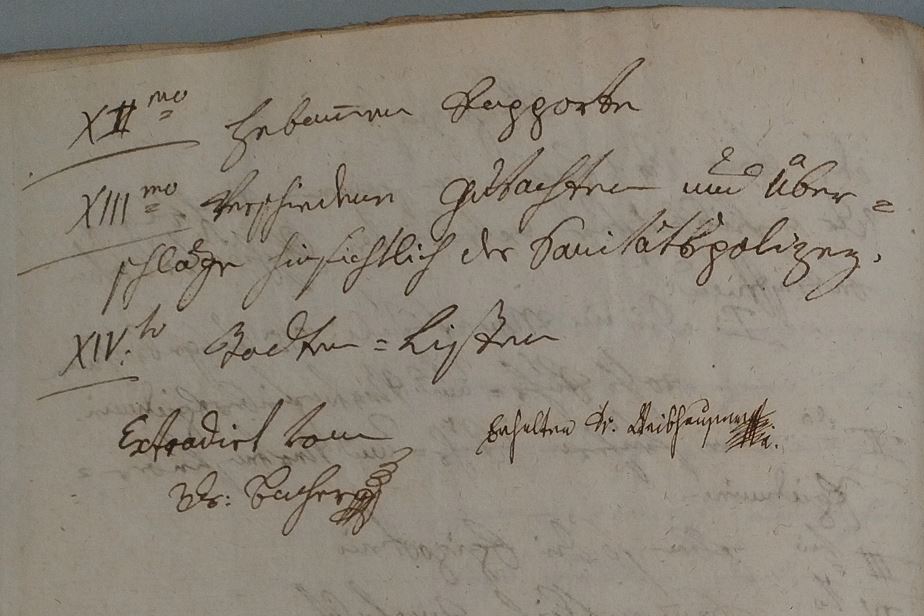 XII mo Hebammen Rapporte
XIII mo Verschiedene Gutachten und Über=
schläge hinsichtlich der Sanitätspolizey.
XIV. to Todten=Listen
Extradirt vom
Dr: Bacher
Erhalten Dr.